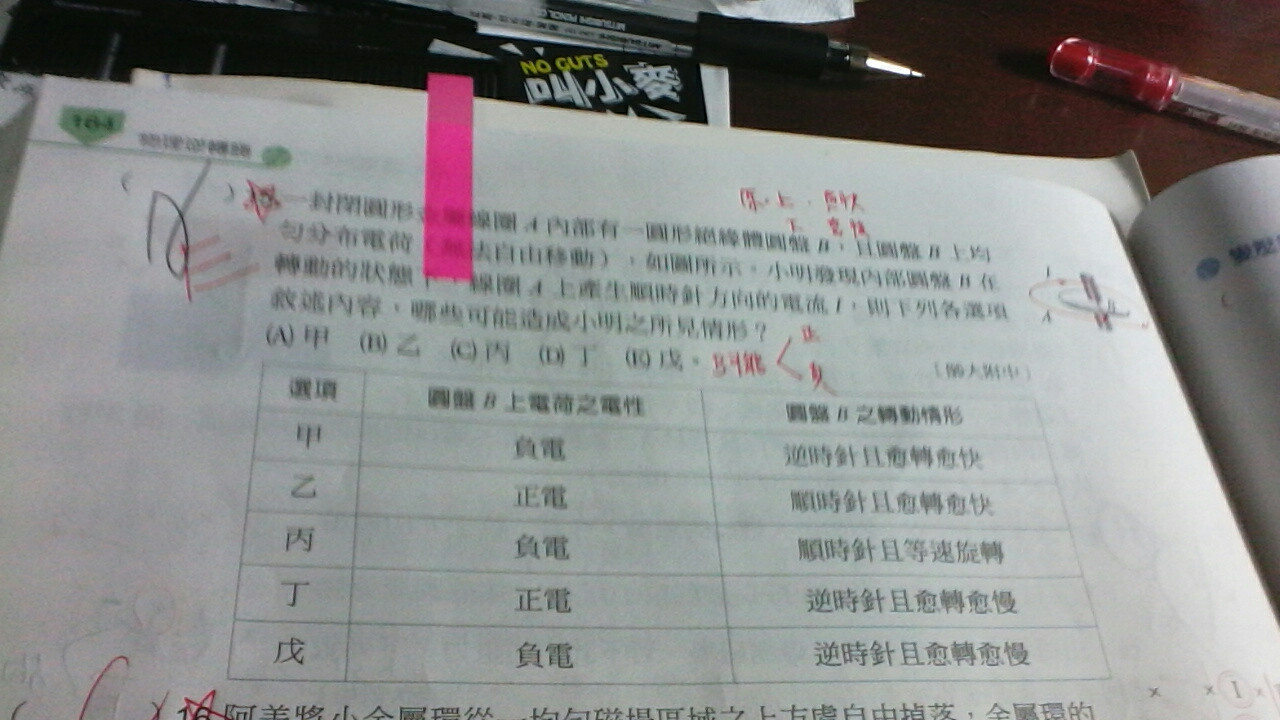 NO GUTS
叫小
MITSUBISHI PENCIL CO
164
一封閉圓形 線圈 A 內部有一圓形絕緣體圓盤 B，且圓盤 B 上均
勻分布電荷 法自由移動），如圖所示。小明發現內部圓盤 B 在
轉動的狀態 線圈 A 上產生順時針方向的電流 I，則下列各選項
敘述內容，哪些可能造成小明之所見情形？
(A) 甲 (B) 乙 (C) 丙 (D) 丁 (E) 戊。
正
負
〔師大附中〕
選項 圓盤 B 上電荷之電性 圓盤 B 之轉動情形
甲 負電 逆時針且愈轉愈快
乙 正電 順時針且愈轉愈快
丙 負電 順時針且等速旋轉
丁 正電 逆時針且愈轉愈慢
戊 負電 逆時針且愈轉愈慢
16 阿美將小金屬環從一均勻磁場區域之上方處自由掉落，金屬環的